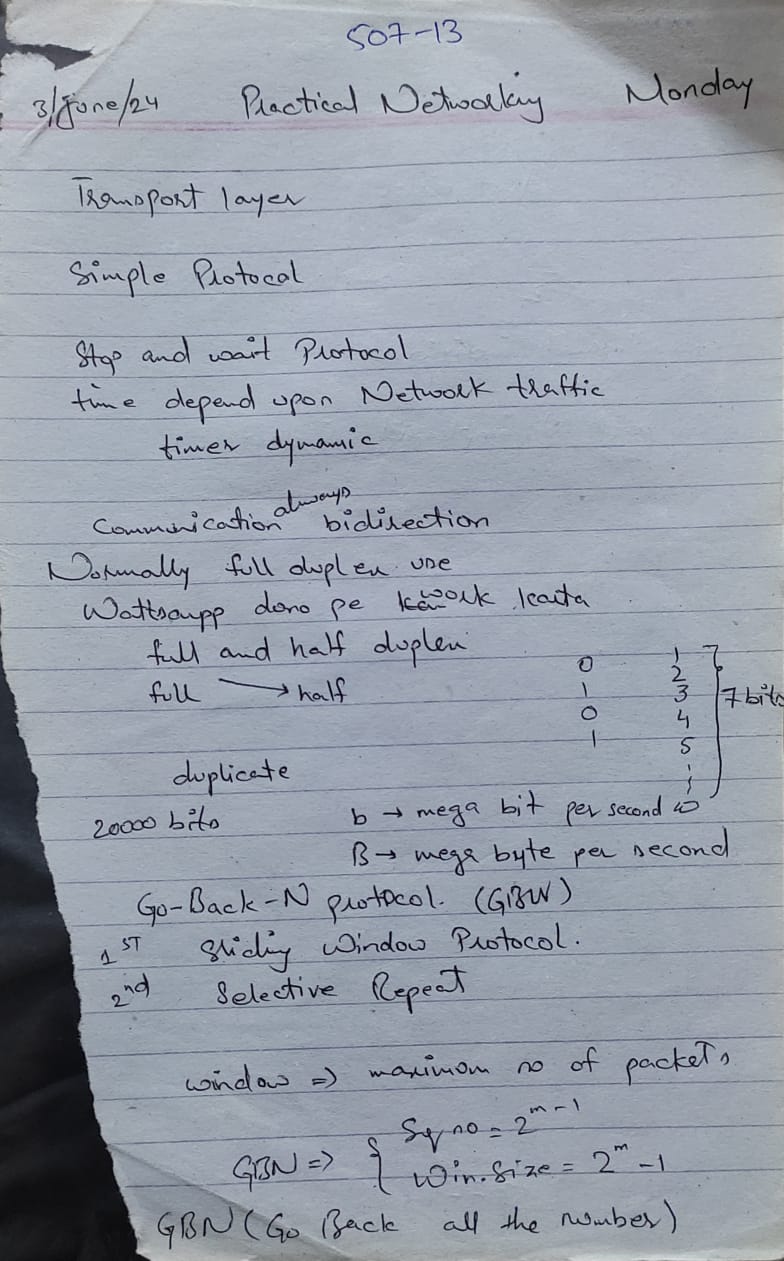 507-13
3/June/24 Practical Networking Monday
Transport layer
Simple Protocal
Stop and wait Protocol
time depend upon Network traffic
timer dynamic
Communication always bidirection
Normally full duplex use
Wattsaupp dono pe work karta
full and half duplex
full → half
0 1
1 2
0 3
1 4
5
10
7 bits
duplicate
20000 bits b → mega bit per second
B → mega byte per second
Go-Back-N protocol. (GBN)
1ST Sliding Window Protocol.
2nd Selective Repeat
window => maximum no of packets
GBN => { Sq no = 2^m-1
Win.Size = 2^m - 1
GBN (Go Back all the number)